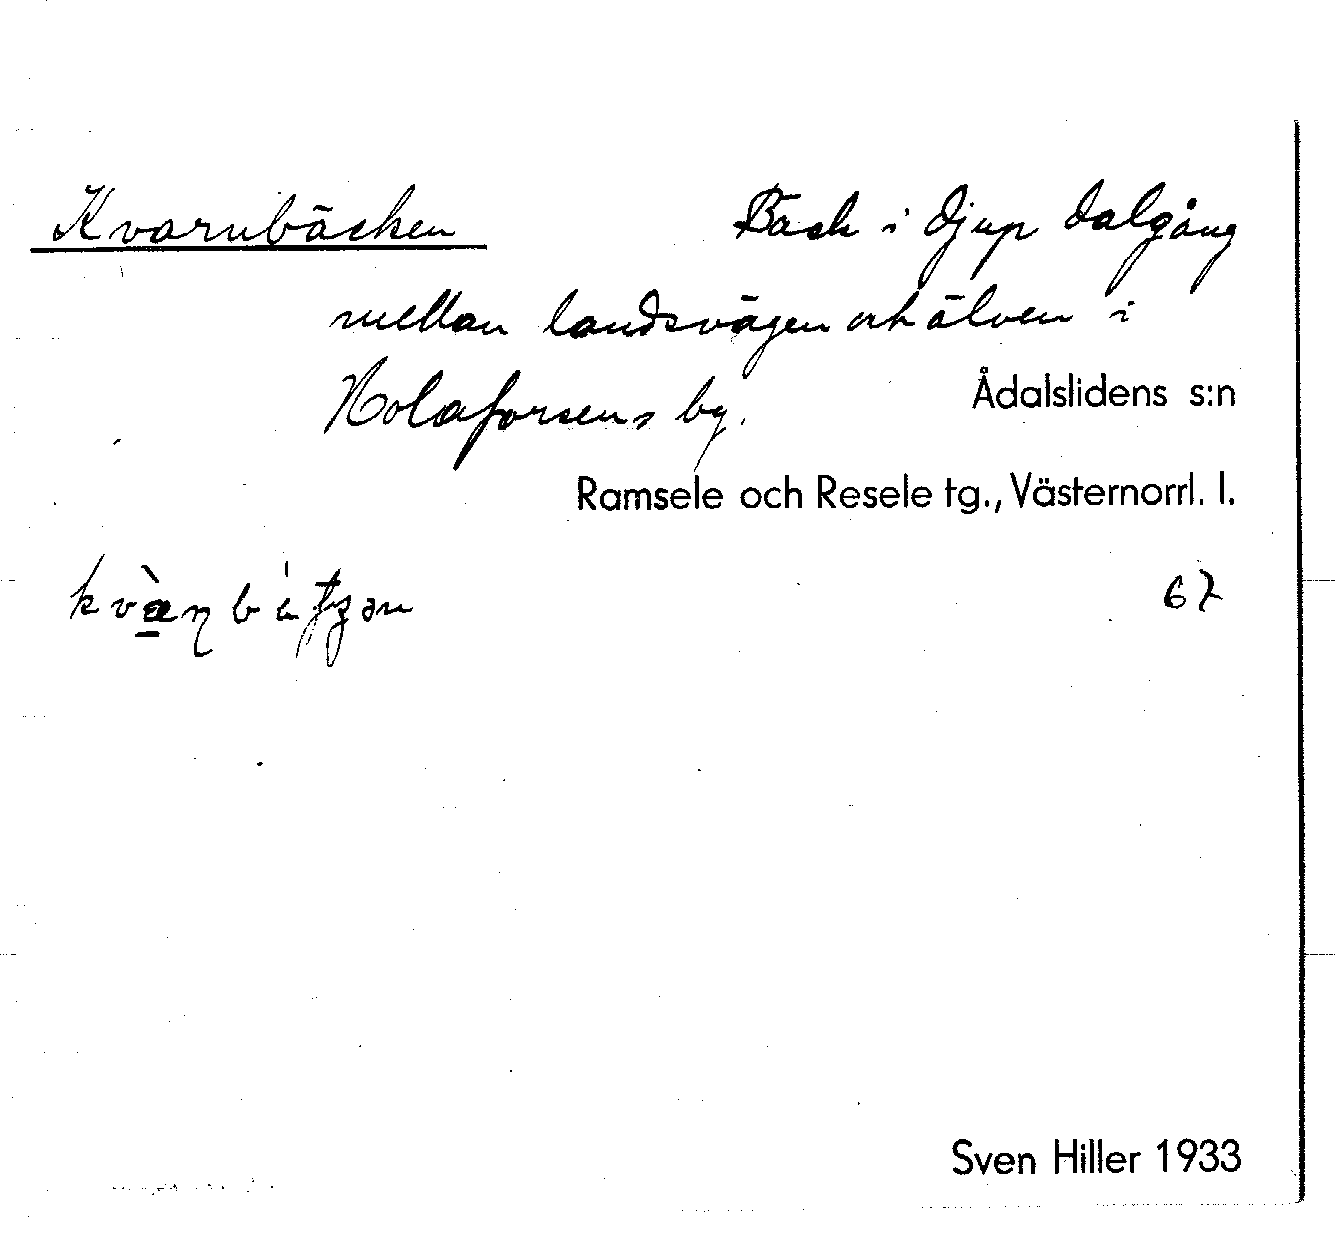 Kvarnbäcken Bäck i djup dalgång
mellan landsvägen och älven i
Holaforsens by. Ådalslidens s:n
Ramsele och Resele tg., Västernorrl. l.
67
Sven Hiller 1933